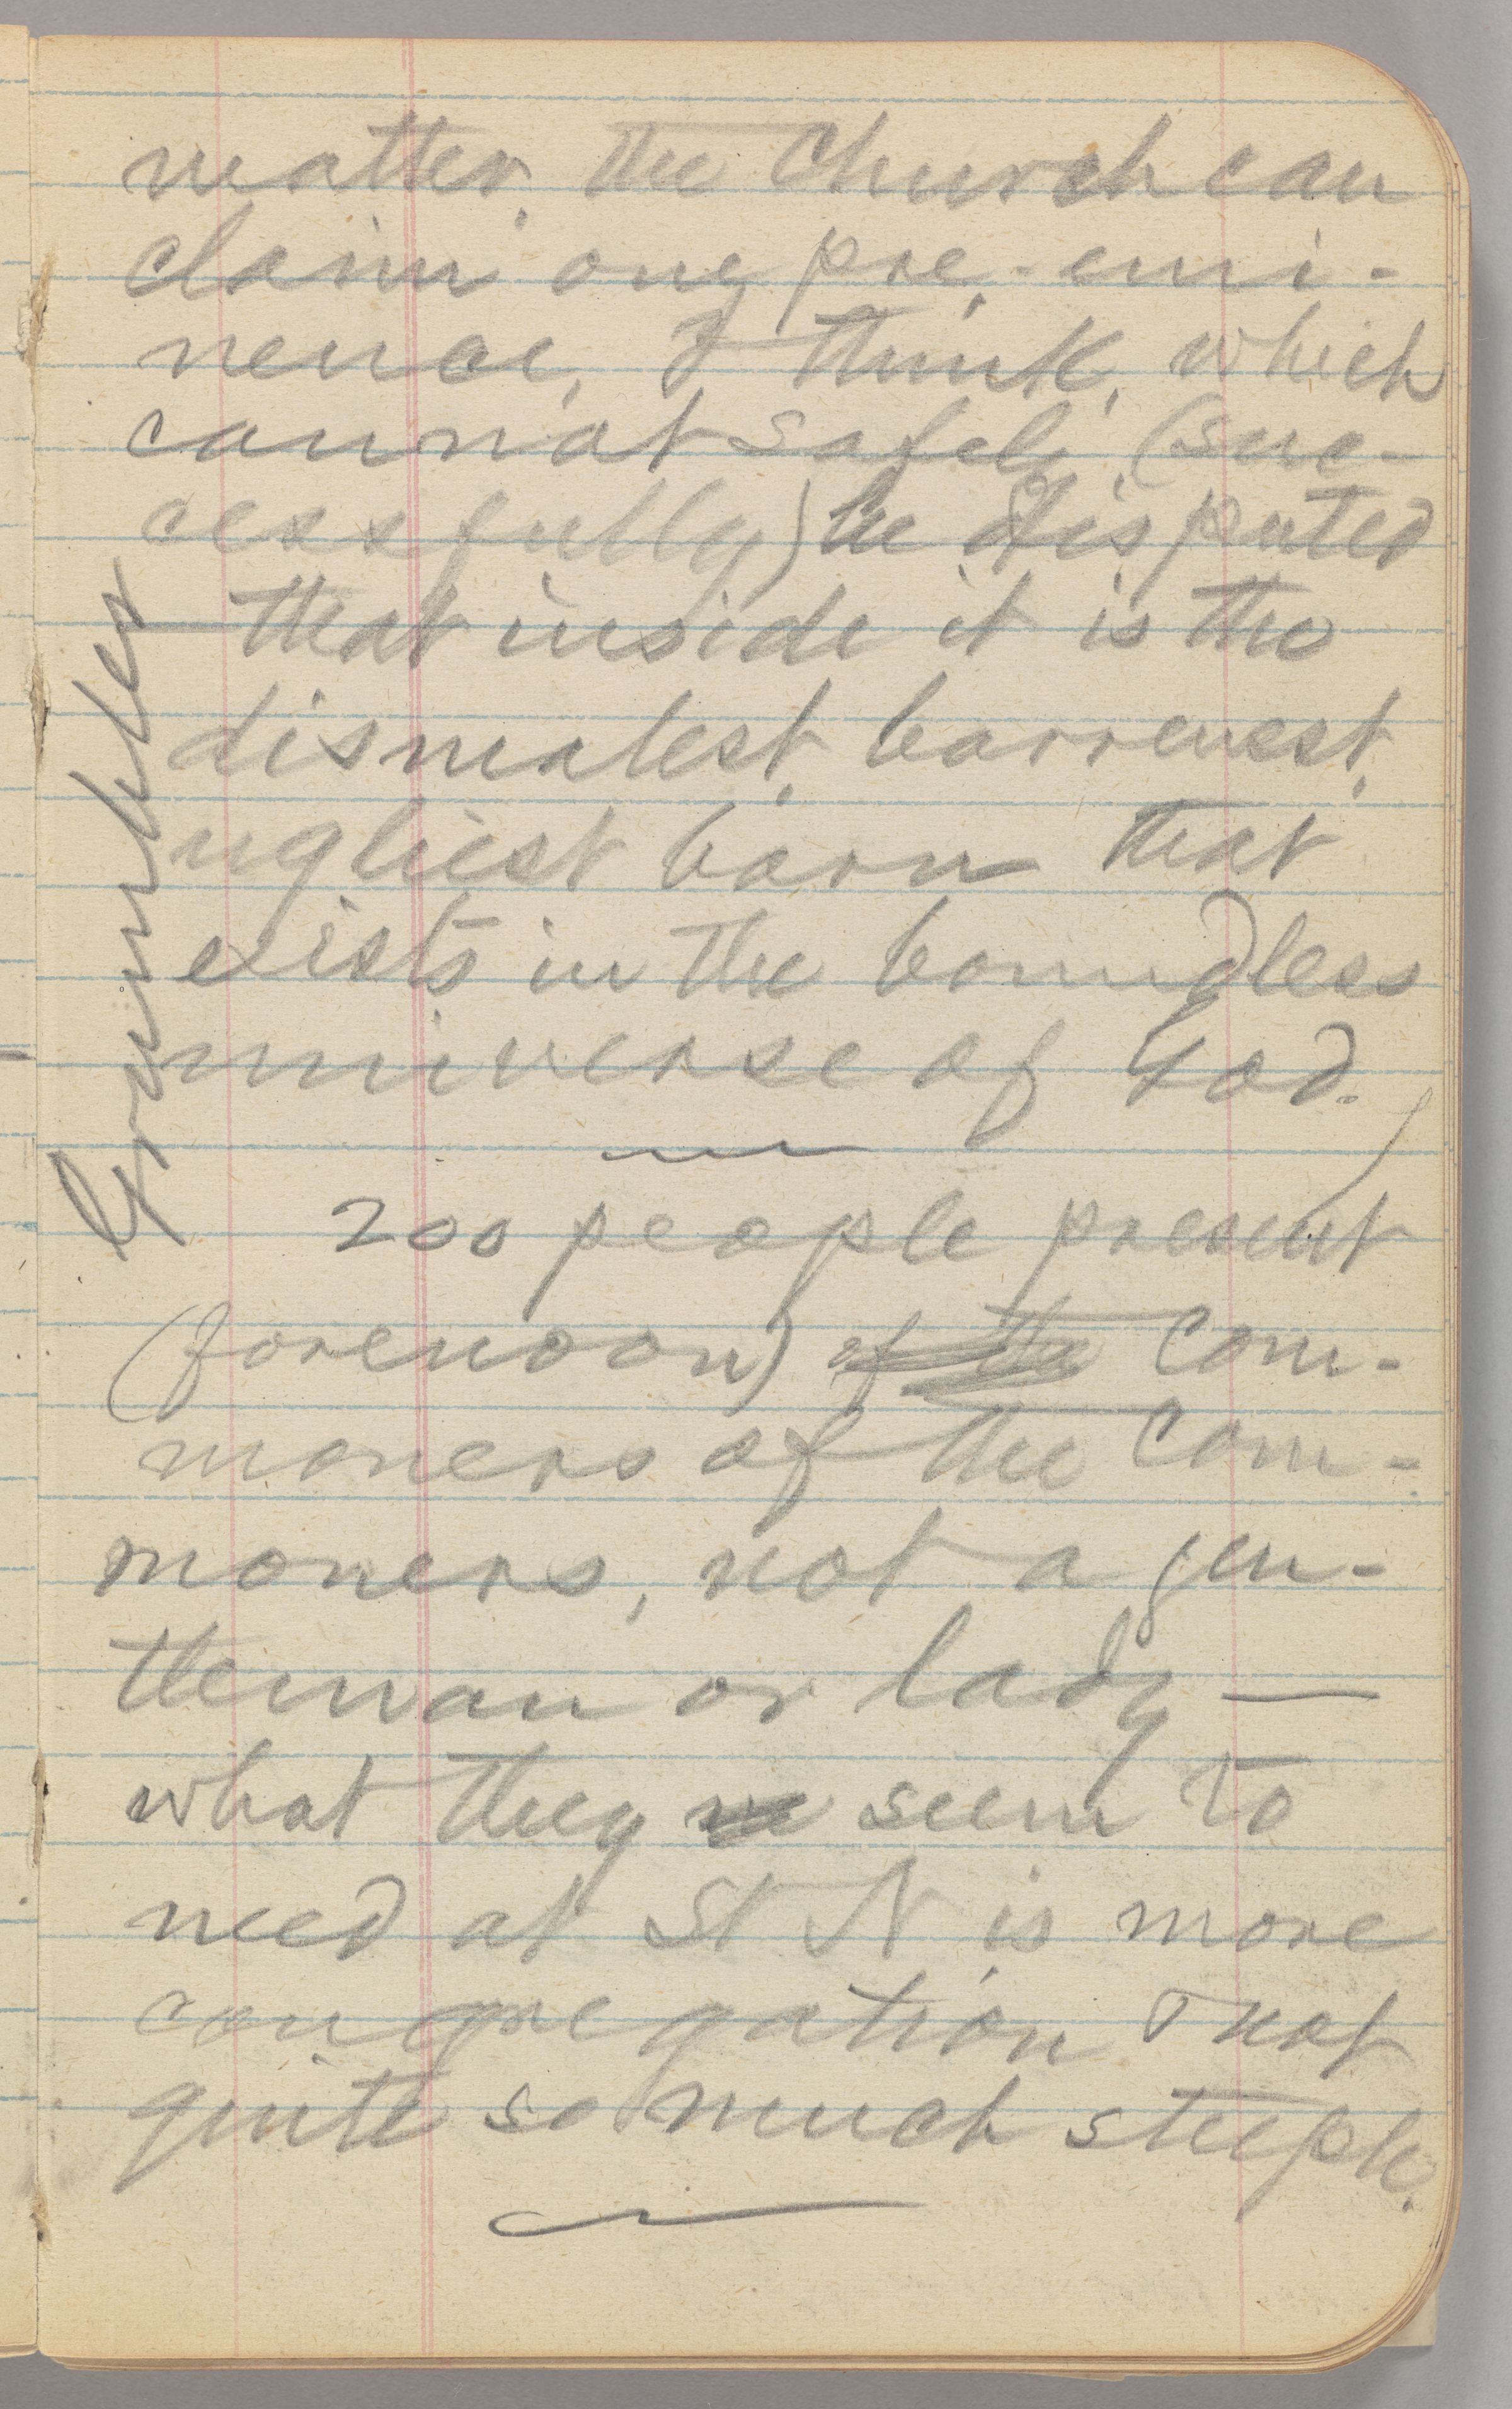 matter, the Church can
claim one pre-emi-
nence, I think, which
cannot safely (suc-
cessfully) be disputed
—that inside it is the
dismalest, barrenest,
ugliest barn that
exists in the boundless
universe of God.
200 people present
(forenoon) of the com-
moners of the com-
moners, not a gen-
tleman or lady —
what they ne seem to
need at St N, is more
congregation & not
quite so much steeple.